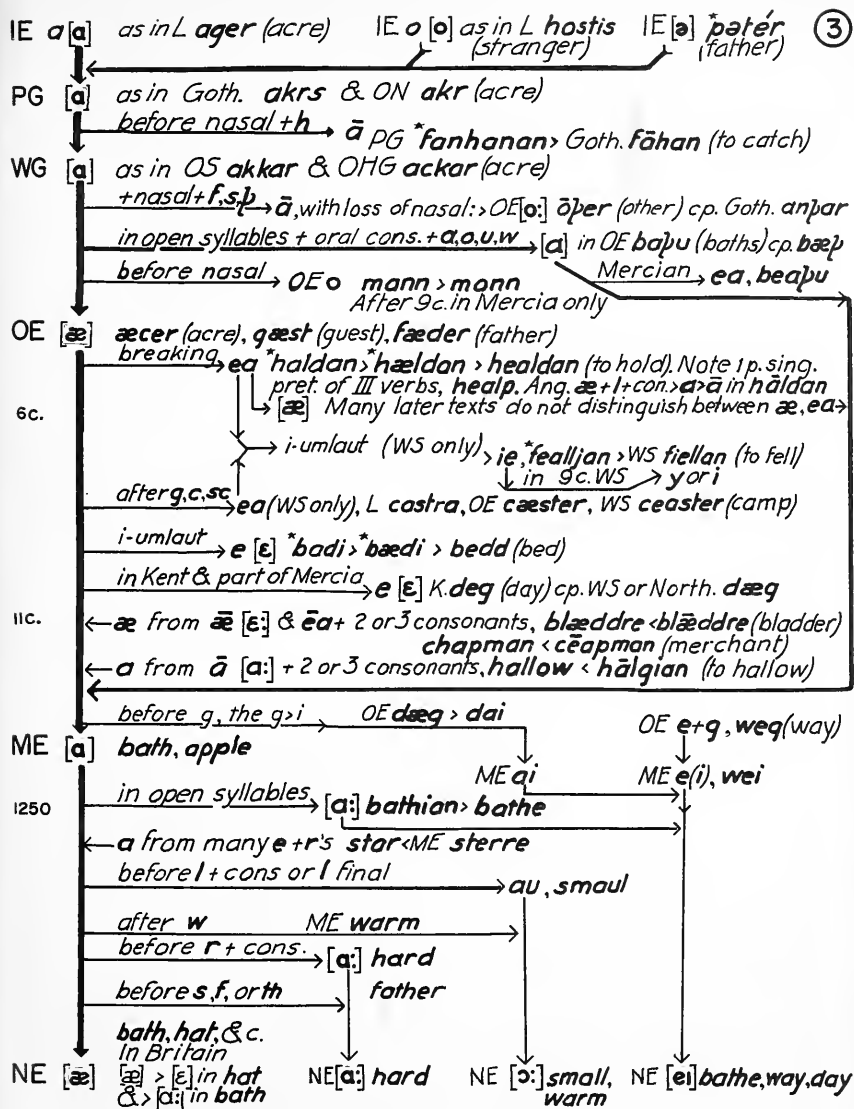 IE a [ɑ] as in L ager (acre) IE o [o] as in L hostis (stranger) IE [ə] *pətér (father) ③
PG [ɑ] as in Goth. akrs & ON akr (acre)
before nasal + h → ā PG *fanhanan > Goth. fāhan (to catch)
WG [ɑ] as in OS akkar & OHG ackar (acre)
+nasal + f, s, þ → ā, with loss of nasal: > OE [o:] ōþer (other) cp. Goth. anþar
in open syllables + oral cons. + a, o, u, w → [ɑ] in OE baþu (baths) cp. bæþ
before nasal → OE o mann > monn Mercian → ea, beaþu
After 9c. in Mercia only
OE [æ] æcer (acre), gæst (guest), fæder (father)
breaking → ea *haldan > *hældan > healdan (to hold). Note 1 p. sing.
pret. of III verbs, healp. Ang. æ + l + con. > a > ā in hāldan
6c. → [æ] Many later texts do not distinguish between æ, ea →
→ i-umlaut (WS only) > ie, *fealljan > WS fiellan (to fell)
in 9c. WS → y or i
after g, c, sc → ea (WS only), L castra, OE cæster, WS ceaster (camp)
i-umlaut → e [ɛ] *badi > *bædi > bedd (bed)
in Kent & part of Mercia → e [ɛ] K. deg (day) cp. WS or North. dæg
11c. ← æ from ǣ [ɛ:] & ēa + 2 or 3 consonants, blæddre < blǣddre (bladder)
chapman < cēapman (merchant)
← a from ā [ɑ:] + 2 or 3 consonants, hallow < hālgian (to hallow)
before g, the g > i → OE dæg > dai OE e+g, weg (way)
ME [ɑ] bath, apple
ME ai → ME e(i), wei
1250 in open syllables → [ɑ:] bathian > bathe
← a from many e + r's star < ME sterre
before l + cons or l final → au, smaul
after w ME warm →
before r + cons. → [ɑ:] hard
before s, f, or th → father
bath, hat, &c.
In Britain
NE [æ] [æ] > [ɛ] in hat NE [ɑ:] hard NE [ɔ:] small, warm NE [ei] bathe, way, day
& > [ɑ:] in bath